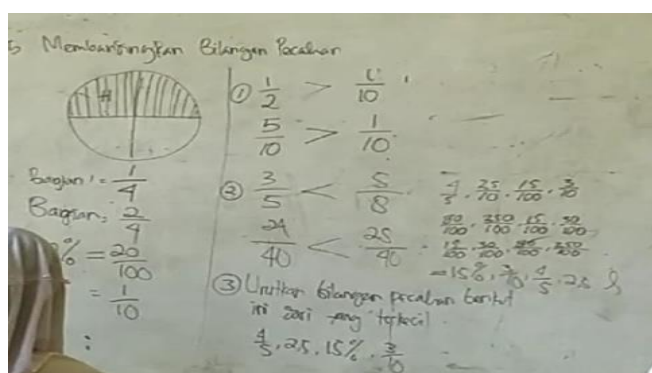 5 Membandingkan Bilangan Pecahan
A
Bagian, = 1/4
Bagian, 2/4
% = 20/100
= 1/10
:
① 1/2 > 1/10
5/10 > 1/10
② 3/5 < 5/8
24/40 < 25/40
③ Urutkan bilangan pecahan berikut
ini dari yang terkecil
4/5, 2,5, 15%, 3/10
4/5, 25/10, 15/100, 3/10
80/100, 250/100, 15/100, 30/100
15/100, 30/100, 80/100, 250/100
= 15%, 3/10, 4/5, 2,5